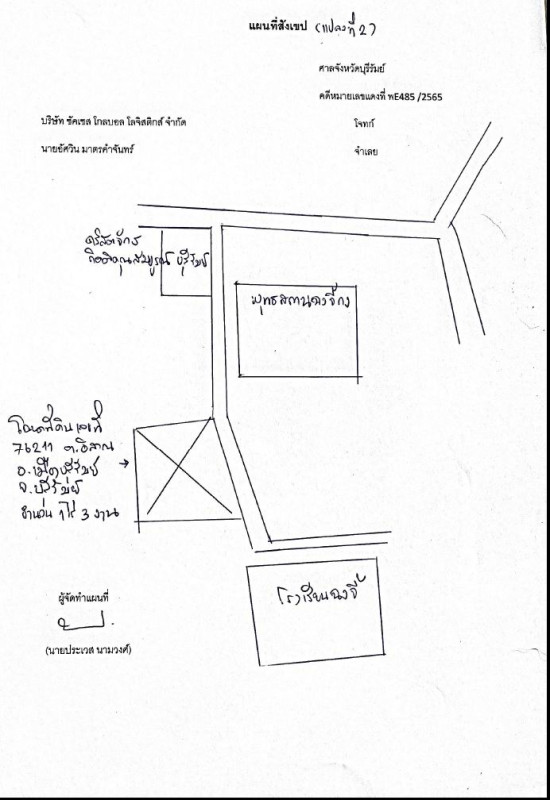 แผนที่สังเขป (แปลงที่ 2)
ศาลจังหวัดบุรีรัมย์
คดีหมายเลขแดงที่ พE485 /2565
บริษัท ซัคเซส โกลบอล โลจิสติกส์ จำกัด โจทก์
นายอัศวิน มาตรคำจันทร์ จำเลย
คริสตจักร
กิตติคุณสมบูรณ์ บุรีรัมย์
พุทธสถานฉงจี้กง
โฉนดที่ดินเลขที่
76211 ต.อิสาณ
อ.เมืองบุรีรัมย์
จ.บุรีรัมย์
จำนวน 1 ไร่ 3 งาน
โรงเรียนฉงจี้
ผู้จัดทำแผนที่
(นายประเวส นามวงศ์)